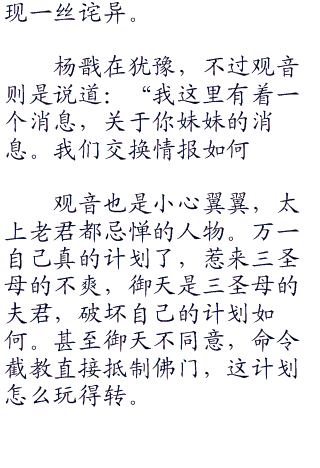 现一丝诧异。
杨戬在犹豫，不过观音
则是说道：“我这里有着一
个消息，关于你妹妹的消
息。我们交换情报如何
观音也是小心翼翼，太
上老君都忌惮的人物。万一
自己真的计划了，惹来三圣
母的不爽，御天是三圣母的
夫君，破坏自己的计划如
何。甚至御天不同意，命令
截教直接抵制佛门，这计划
怎么玩得转。